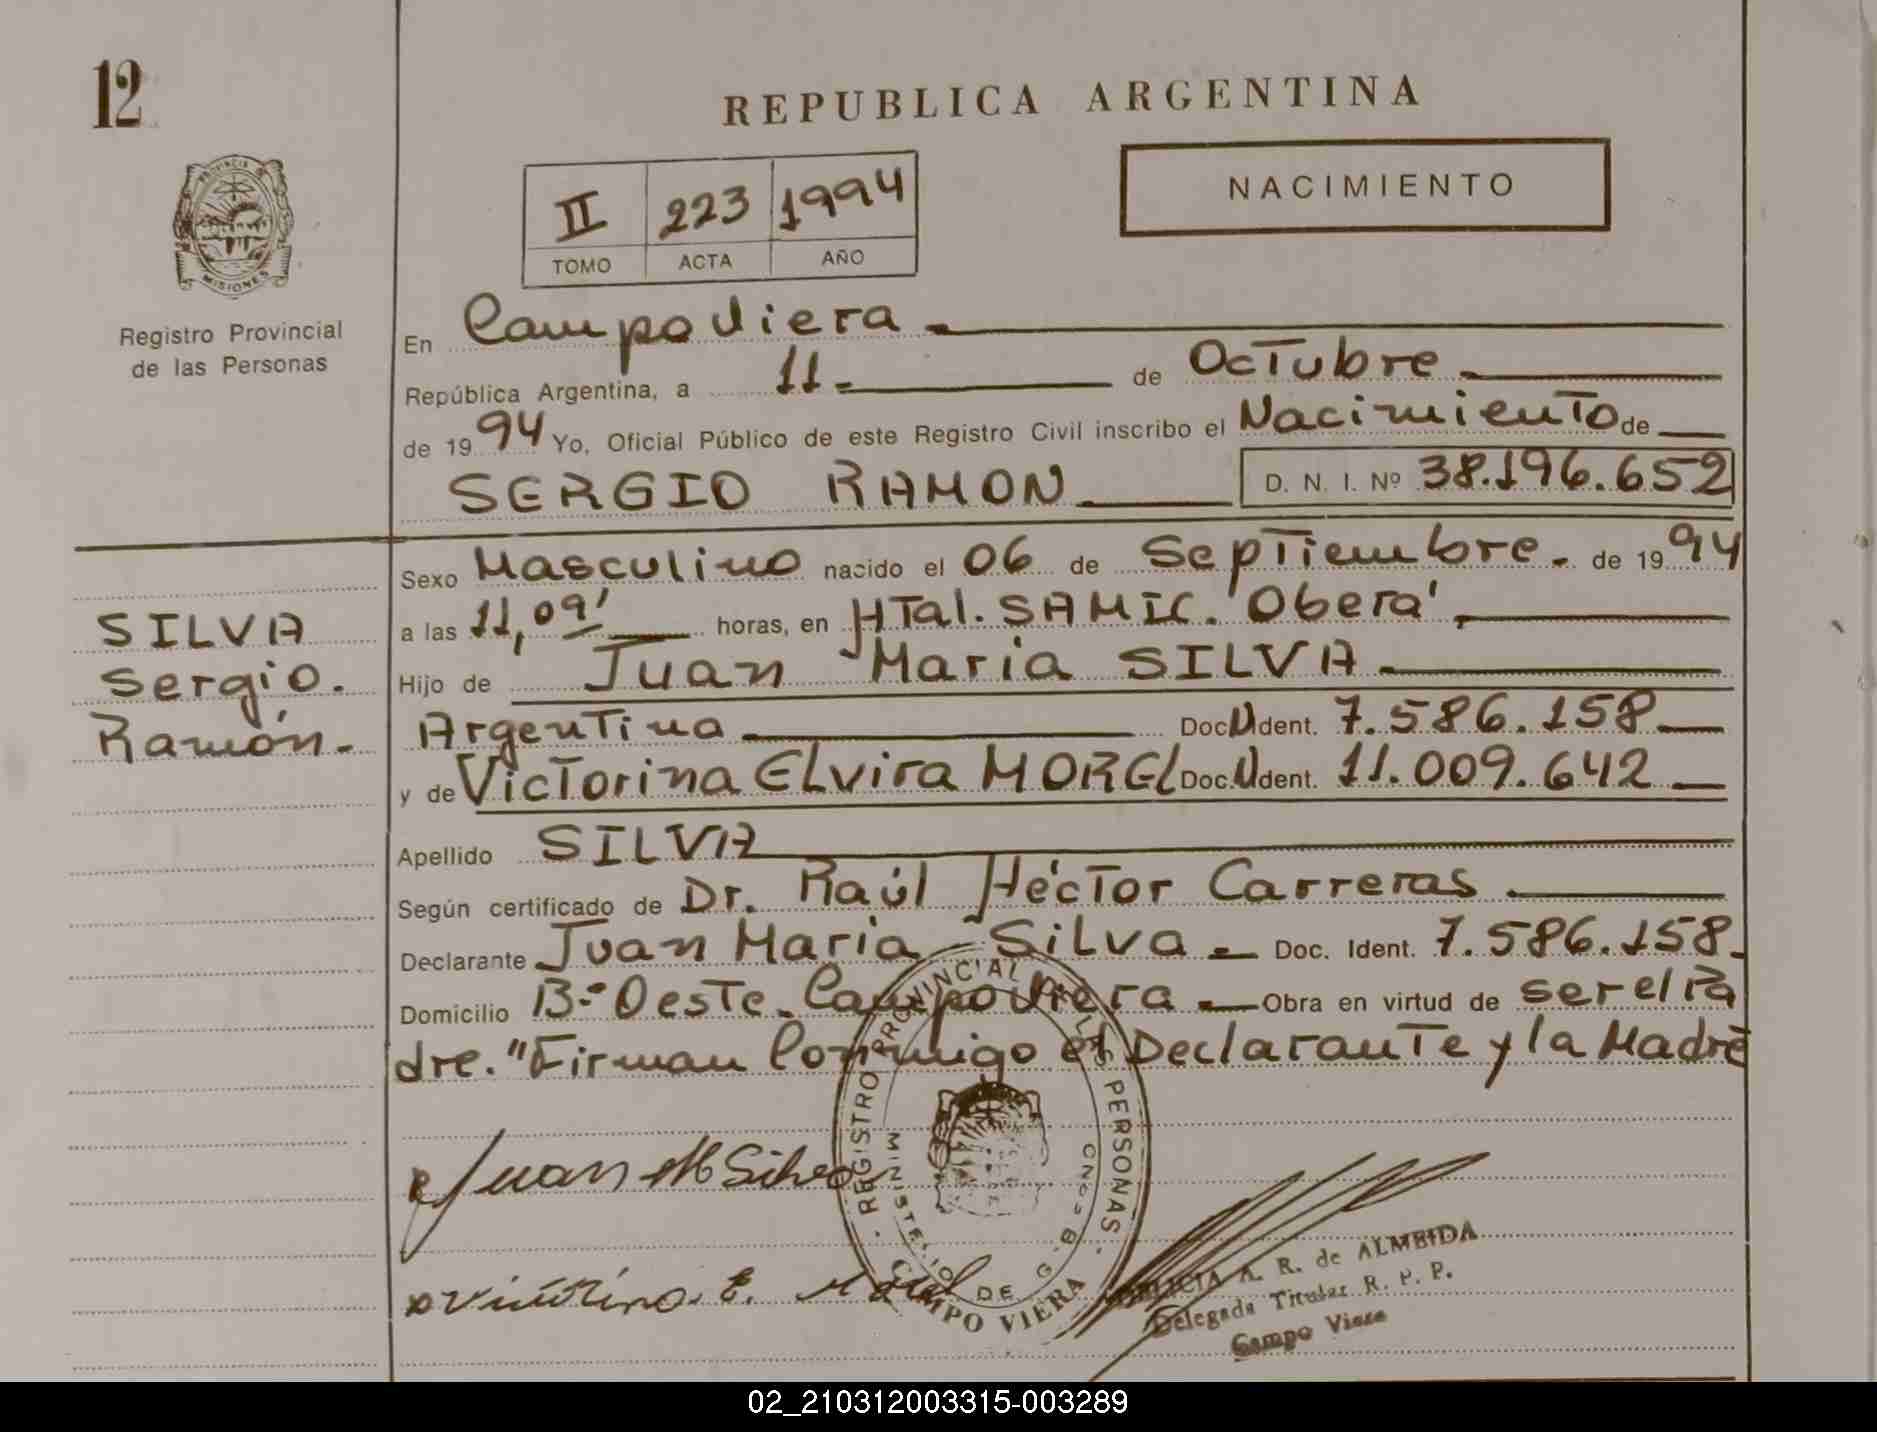 12
REPUBLICA ARGENTINA
NACIMIENTO
II 223 1994
TOMO ACTA AÑO
PROVINCIA DE
MISIONES
Registro Provincial
de las Personas
En Campo Viera
República Argentina, a 11 de Octubre
de 1994 Yo, Oficial Público de este Registro Civil inscribo el Nacimiento de
SERGIO RAMON D. N. I. Nº 38.196.652
Sexo Masculino nacido el 06 de Septiembre. de 1994
a las 11,09' horas, en HTal. SAMIC. 'Oberá'
Hijo de Juan Maria SILVA
Argentina Doc. Ident. 7.586.158
y de Victorina Elvira MOREL Doc. Ident. 11.009.642
Apellido SILVA
Según certificado de Dr. Raúl Héctor Carreras
Declarante Juan Maria Silva Doc. Ident. 7.586.158
Domicilio Bº Oeste. Campo Viera Obra en virtud de ser el Pa
dre. "Firman Conmigo el Declarante y la Madre
SILVA
Sergio.
Ramón
Juan M Silva
Victorina. E. Morel
REGISTRO PROVINCIAL DE LAS PERSONAS
MINISTERIO DE G.
CAMPO VIERA
A. R. de ALMEIDA
Delegada Titular R. P. P.
Campo Viera
02_210312003315-003289